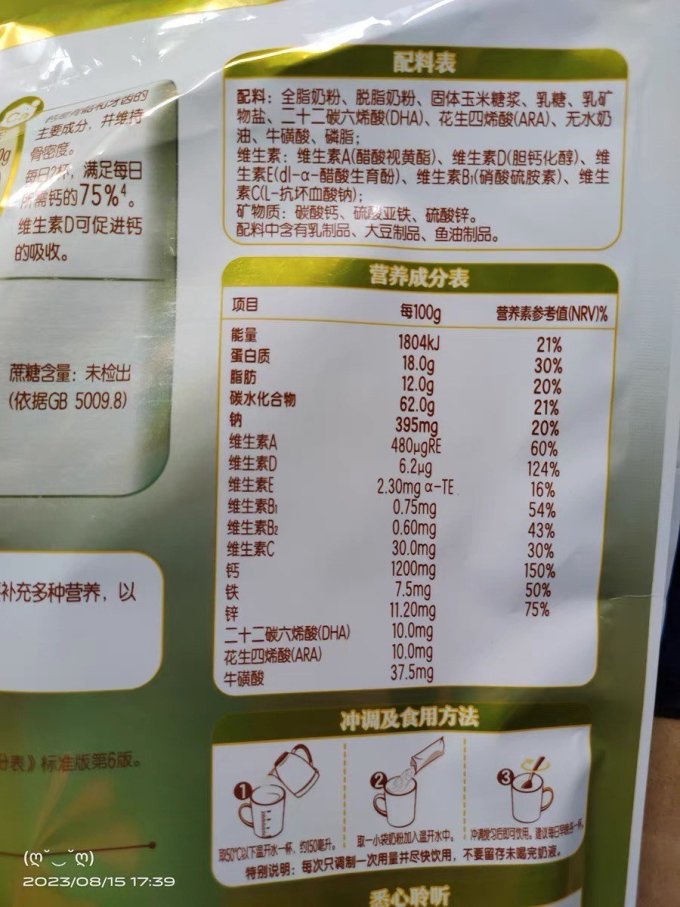 主要成分，并维持
骨密度。
每日2杯，满足每日
所需钙的75%⁴。
维生素D可促进钙
的吸收。
蔗糖含量：未检出
(依据GB 5009.8)
补充多种营养，以
标准版第6版。
配料表
配料：全脂奶粉、脱脂奶粉、固体玉米糖浆、乳糖、乳矿
物盐、二十二碳六烯酸(DHA)、花生四烯酸(ARA)、无水奶
油、牛磺酸、磷脂；
维生素：维生素A(醋酸视黄酯)、维生素D(胆钙化醇)、维
生素E(dl-α-醋酸生育酚)、维生素B₁(硝酸硫胺素)、维生
素C(L-抗坏血酸钠)；
矿物质：碳酸钙、硫酸亚铁、硫酸锌。
配料中含有乳制品、大豆制品、鱼油制品。
营养成分表
项目 每100g 营养素参考值(NRV)%
能量 1804kJ 21%
蛋白质 18.0g 30%
脂肪 12.0g 20%
碳水化合物 62.0g 21%
钠 395mg 20%
维生素A 480μgRE 60%
维生素D 6.2μg 124%
维生素E 2.30mg α-TE 16%
维生素B₁ 0.75mg 54%
维生素B₂ 0.60mg 43%
维生素C 30.0mg 30%
钙 1200mg 150%
铁 7.5mg 50%
锌 11.20mg 75%
二十二碳六烯酸(DHA) 10.0mg
花生四烯酸(ARA) 10.0mg
牛磺酸 37.5mg
冲调及食用方法
1 2 3
取50℃以下温开水一杯，约150毫升。 取一小袋奶粉加入温开水中。 冲调搅匀后即可饮用。建议每日早晚各一杯。
特别说明：每次只调制一次用量并尽快饮用，不要留存未喝完奶液。
悉心聆听
(ღ˘⌣˘ღ)
2023/08/15 17:39